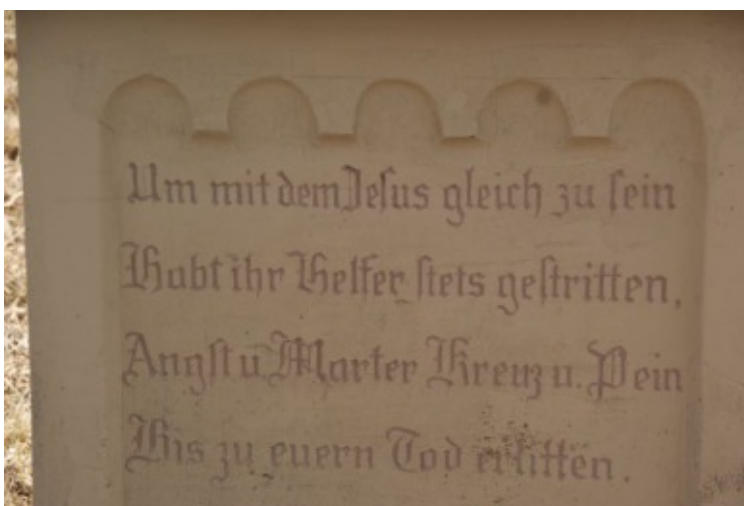 Um mit dem Jesus gleich zu sein
Habt ihr Helfer stets gestritten,
Angst u. Marter Kreuz u. Pein
Bis zu euern Tod erlitten.